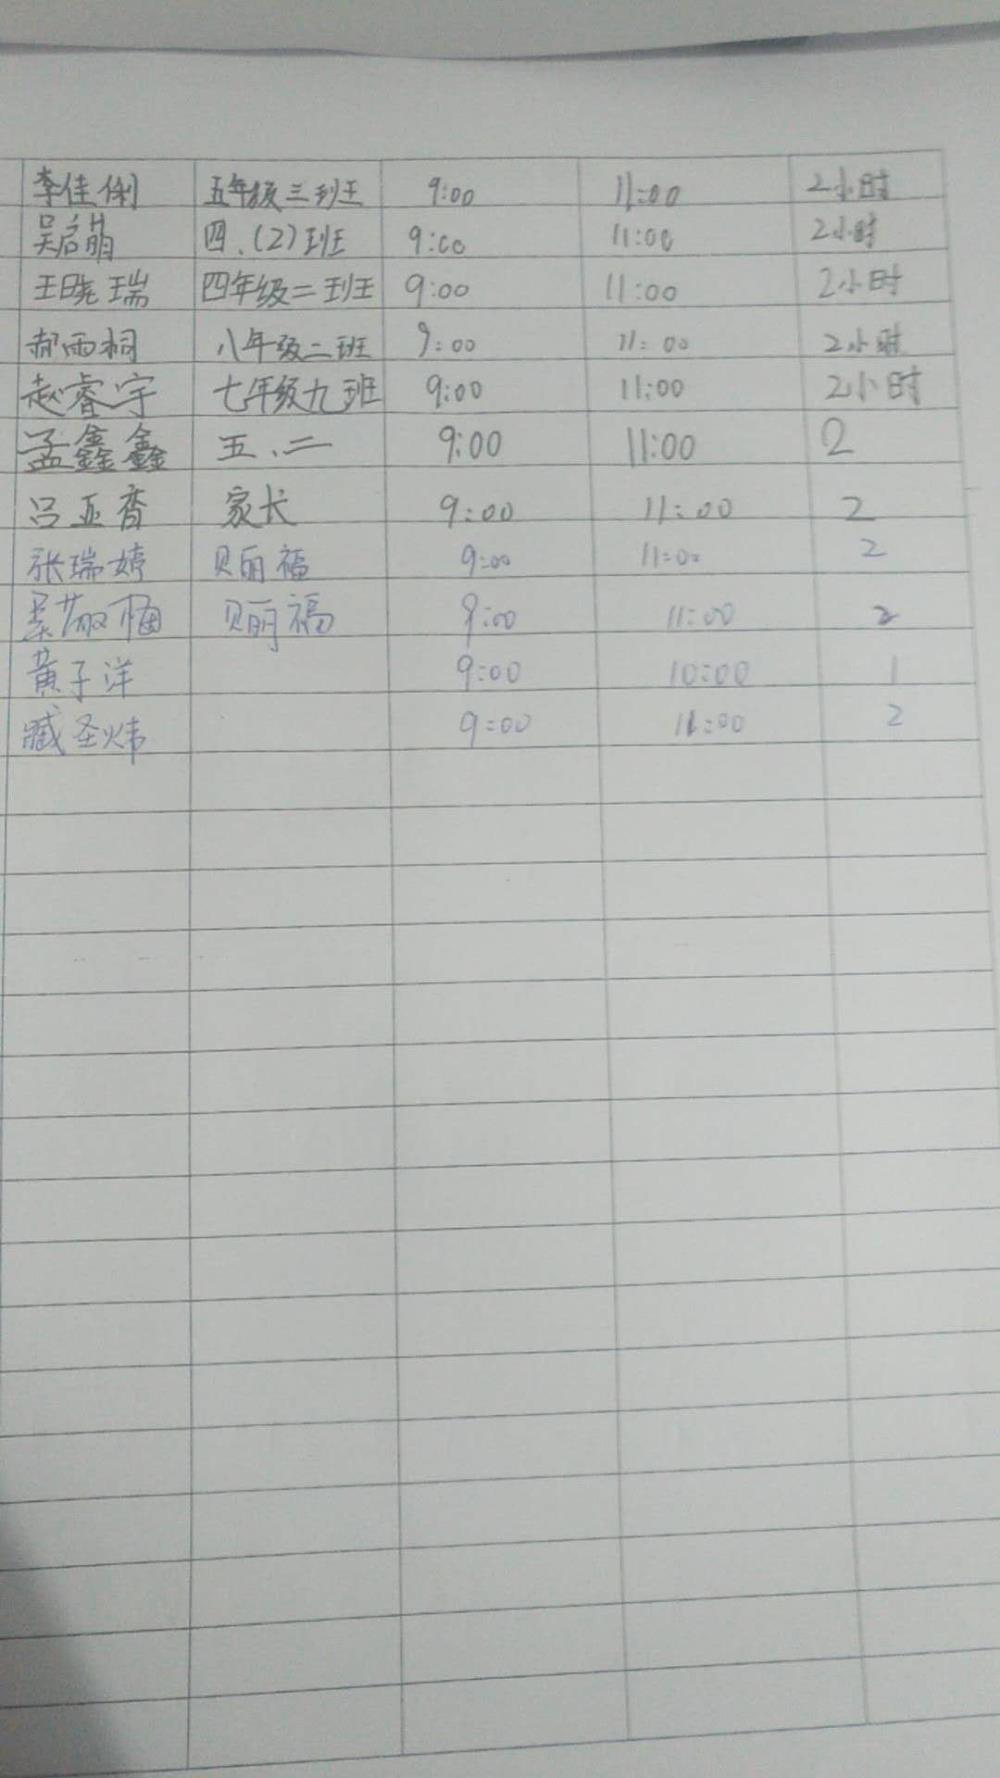 李佳俐 五年级三班 9:00 11:00 2小时
吴启萌 四.(2)班 9:00 11:00 2小时
王晓瑞 四年级二班 9:00 11:00 2小时
郝雨桐 八年级二班 9:00 11:00 2小时
赵睿宇 七年级九班 9:00 11:00 2小时
孟鑫鑫 五.二 9:00 11:00 2
吕亚香 家长 9:00 11:00 2
张瑞婷 贝丽福 9:00 11:00 2
梅 贝丽福 9:00 11:00 2
黄子洋 9:00 10:00 1
臧圣炜 9:00 11:00 2